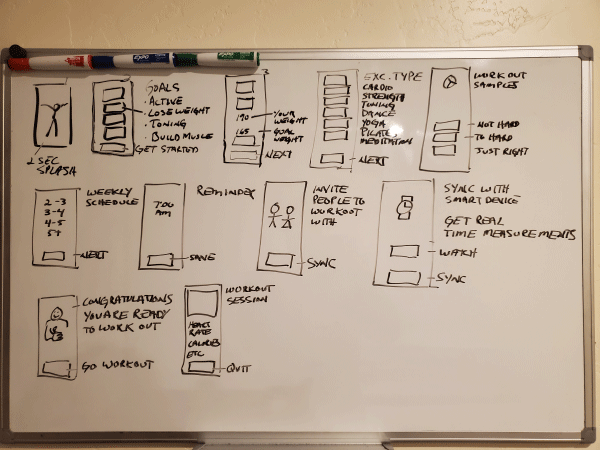 EXPO
EXPO
2 SEC
SPLASH
GOALS
· ACTIVE
· LOSE WEIGHT
· TONING
· BUILD MUSLE
GET STARTED
3
190
YOUR
WEIGHT
165
GOAL
WEIGHT
NEXT
EXC. TYPE
CARDIO
STRENGTH
TONING
DANCE
YOGA
PILATES
MEDITATION
NEXT
WORKOUT
SAMPLES
NOT HARD
TO HARD
JUST RIGHT
WEEKLY
SCHEDULE
2-3
3-4
4-5
5+
NEXT
REMINDER
7:00
AM
SAVE
INVITE
PEOPLE TO
WORKOUT
WITH
SYNC
SYNC WITH
SMART DEVICE
GET REAL
TIME MEASUREMENTS
WATCH
SYNC
CONGRATULATIONS
YOU ARE READY
TO WORK OUT
GO WORKOUT
WORKOUT
SESSION
HEART
RATE
CALORIES
ETC
QUIT